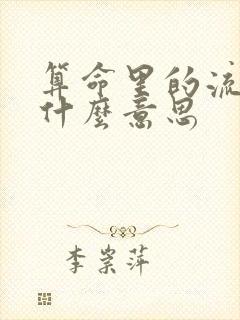 算命里的流
什麼意思
李崇萍